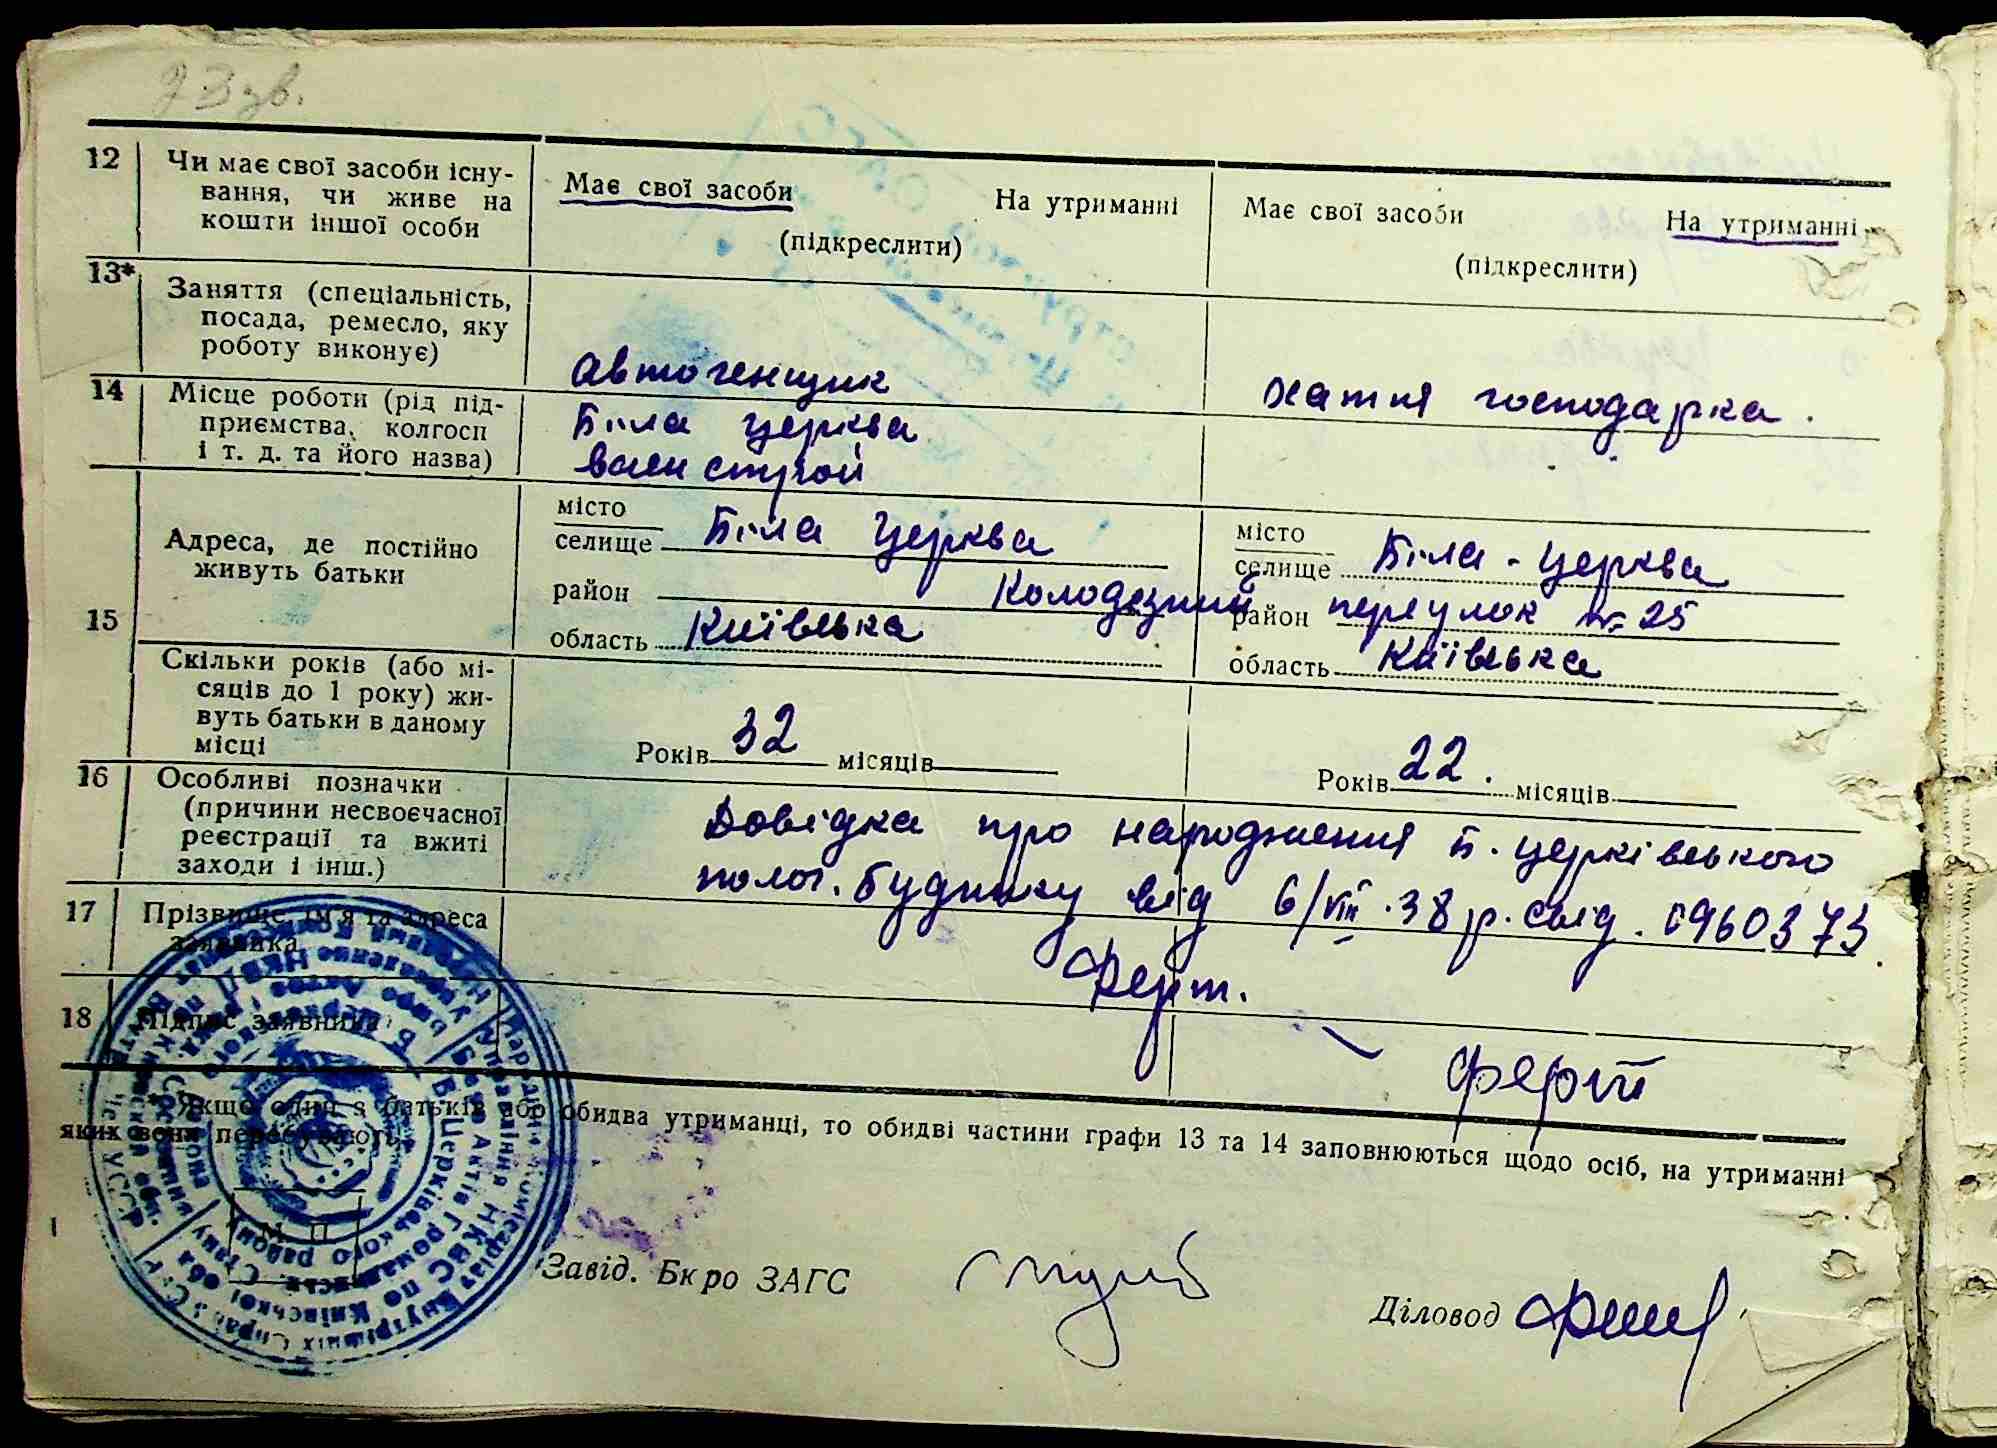 23 зв.
12 Чи має свої засоби існу-
вання, чи живе на
кошти іншої особи
Має свої засоби На утриманні
(підкреслити)
Має свої засоби На утриманні
(підкреслити)
13* Заняття (спеціальність,
посада, ремесло, яку
роботу виконує)
Автогенщик
хатня господарка.
14 Місце роботи (рід під-
приємства, колгосп
і т. д. та його назва)
Біла Церква
15 Адреса, де постійно
живуть батьки
місто
селище Біла Церква
район Колодязний
область Київська
місто
селище Біла-Церква
район переулок № 25
область Київська
Скільки років (або мі-
сяців до 1 року) жи-
вуть батьки в даному
місці
Років 32 місяців
Років 22. місяців
16 Особливі позначки
(причини несвоєчасної
реєстрації та вжиті
заходи і інш.)
Довідка про народження Б. Церківського
полог. будинку від 6/VIII.38 р. свід. 0960373.
17 Прізвище, ім'я та адреса
заявника
Ферт.
18 Підпис заявника
Ферт
* Якщо один з батьків або обидва утриманці, то обидві частини графи 13 та 14 заповнюються щодо осіб, на утриманні
яких вони перебувають.
М. П.
Завід. Бюро ЗАГС
Діловод